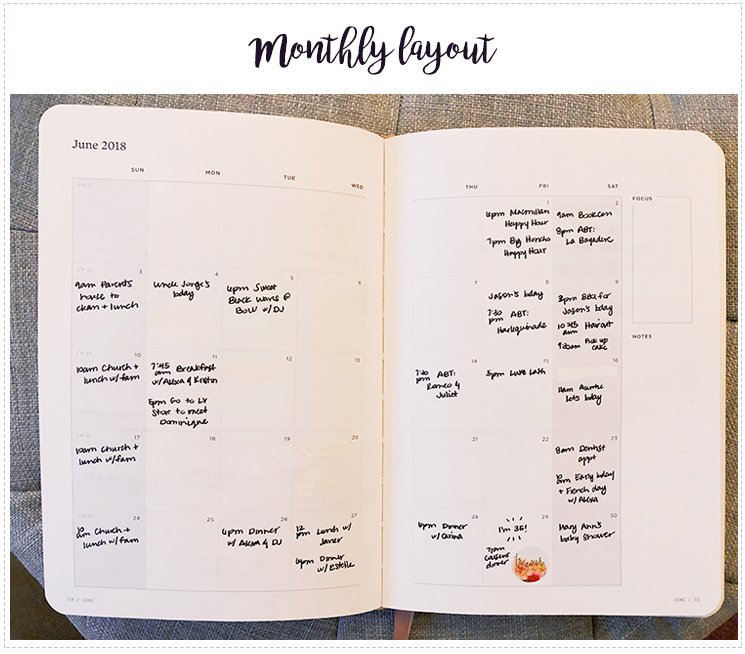 Monthly layout
June 2018
SUN MON TUE WED
THU FRI SAT
FOCUS
1
6pm Macmillan
Happy Hour
7pm Big Honcho
Happy Hour
2
9am Bookcon
8pm ABT:
La Bayadere
3
9am Parents
house to
clean + lunch
4
Uncle Jorge's
bday
5
6pm Sweet
Black Waves @
BOW w/ DJ
7
8
Jason's bday
7:30
pm ABT:
Harlequinade
9
3pm BBQ for
Jason's bday
10:45
am Haircut
Pick up
cake
NOTES
10
10am Church +
lunch w/fam
11
7:45
am Breakfast
w/Alexa & Kristin
5pm Go to LV
Store to meet
Dominique
12
13
14
7:30
pm ABT:
Romeo &
Juliet
15
5pm Luxe Lash
16
11am Auntie
Lots bday
17
10am Church +
lunch w/fam
18
19
20
21
22
23
8am Dentist
appt
10
am Early bday
+ French day
w/ Alexa
24
10
am Church +
lunch w/fam
25
26
6pm Dinner
w/ Alexa & DJ
27
12
pm Lunch w/
Janer
6pm Dinner
w/Estelle
28
6pm Dinner
w/
29
I'm 35!
dinner
30
Mary Ann's
baby shower
/ JUNE
JUNE /